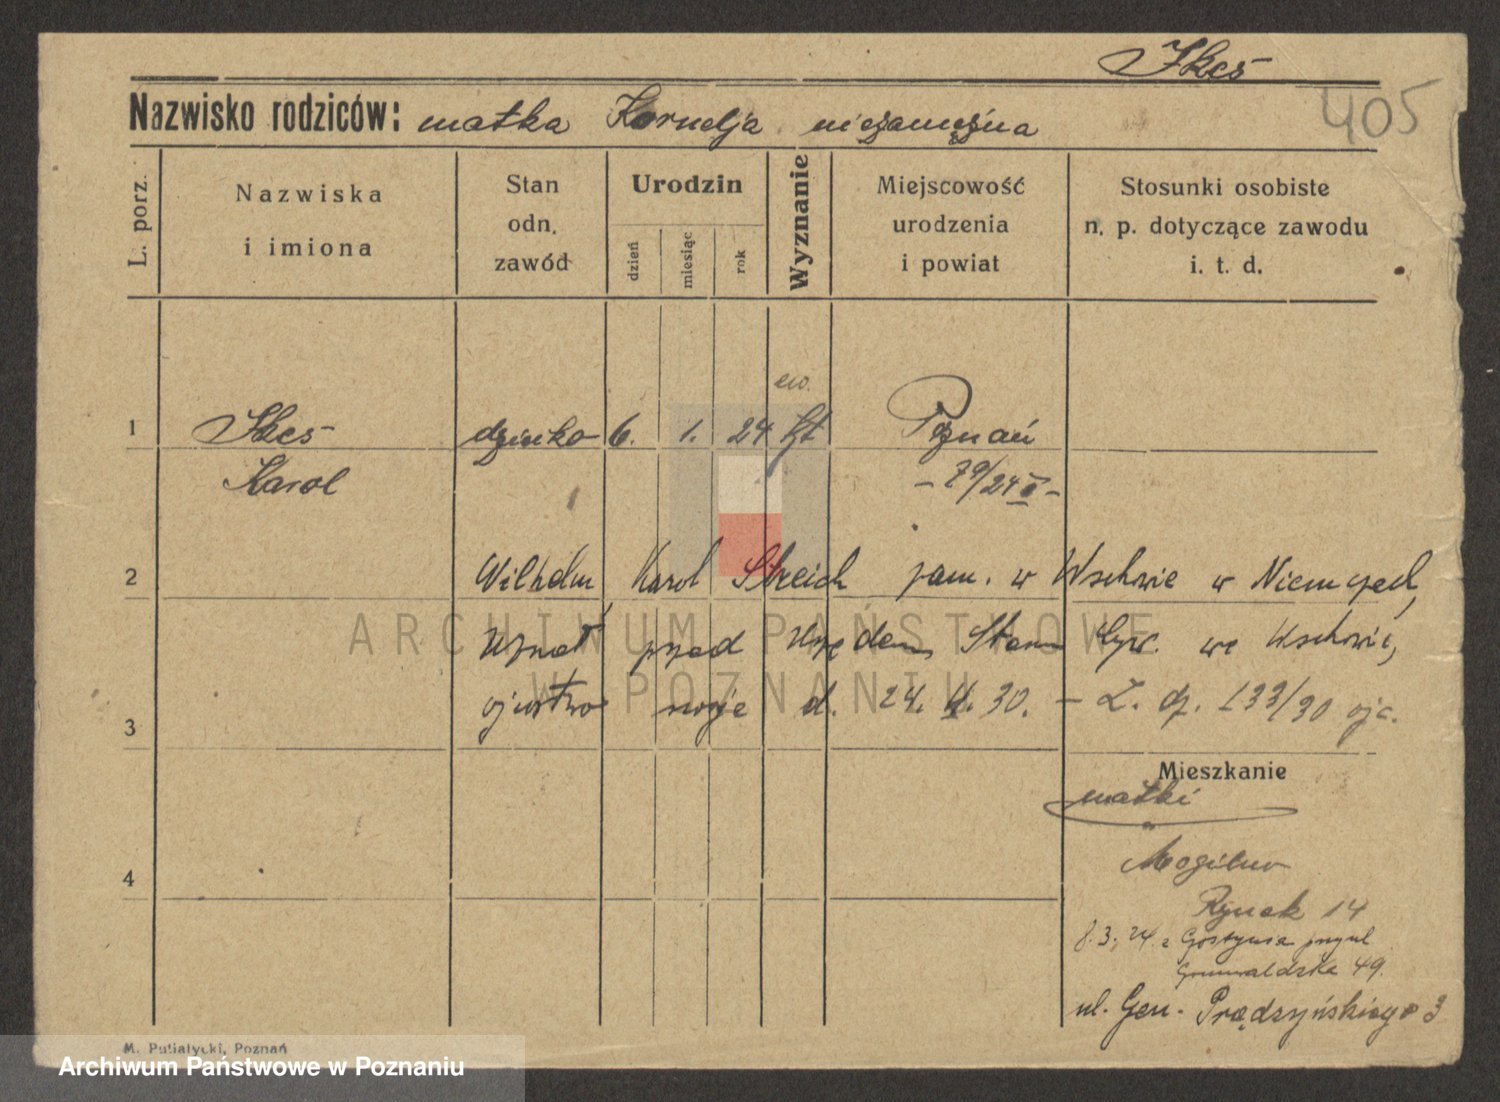 Ikeś
405
Nazwisko rodziców: matka Kornelja niezamężna
L. porz.
Nazwiska
i imiona
Stan
odn.
zawód
Urodzin
dzień
miesiąc
rok
Wyznanie
Miejscowość
urodzenia
i powiat
Stosunki osobiste
n. p. dotyczące zawodu
i. t. d.
ew.
1 dziecko 6. 1. 24 kt Poznań
Karol
- 79/24 II -
2 Wilhelm Karol Streich zam. w Wschowie w Niemczech,
uznał przed Urzędem Stanu Cyw. we Wschowie,
3 ojcostwo swoje d. 24. 30. - L. dz. 133/30 ojc.
Mieszkanie
matki
Mogilno
4
Rynek 14
8.3.24 z Gostynia
Grunwaldzka 49.
ul. Gen. Prądzyńskiego 3
M. Putiatycki, Poznań
ARCHIWUM PAŃSTWOWE
W POZNANIU
Archiwum Państwowe w Poznaniu